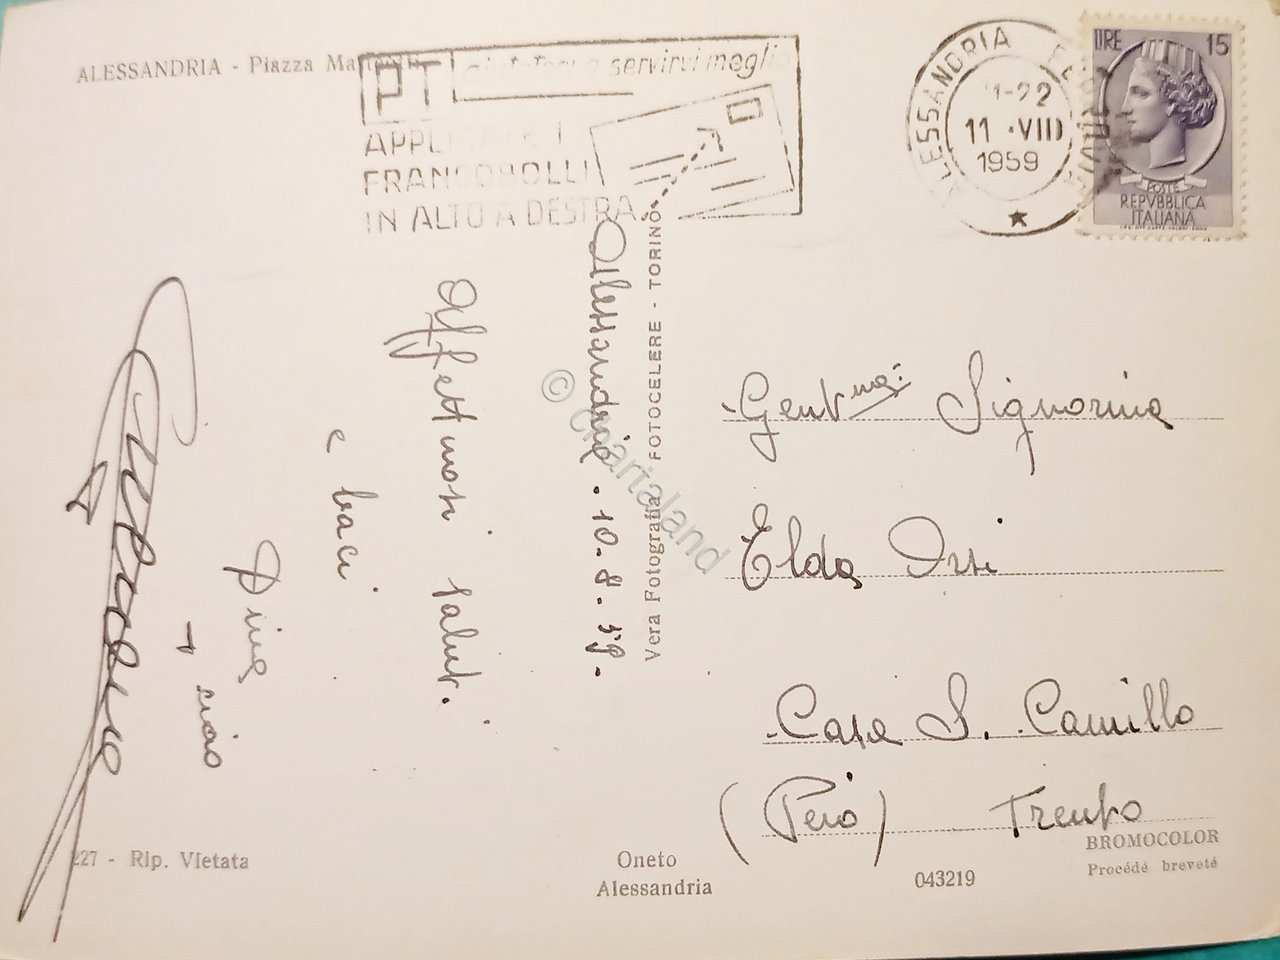 ALESSANDRIA - Piazza
PT aiutateci a servirvi meglio
APPLICATE I
FRANCOBOLLI
IN ALTO A DESTRA
ALESSANDRIA FERROVIA
21-22
11 ·VIII
1959
LIRE 15
POSTE
REPVBBLICA
ITALIANA
Alessandria . 10.8.59.
Affettuosi saluti
e baci
Dina
+ ciao
Vera Fotografia FOTOCELERE - TORINO
© Chartaland
Gent.ma: Signorina
Elda
Casa S. Camillo
(Peio) Trento
227 - Rip. Vietata
Oneto
Alessandria
043219
BROMOCOLOR
Procédé breveté